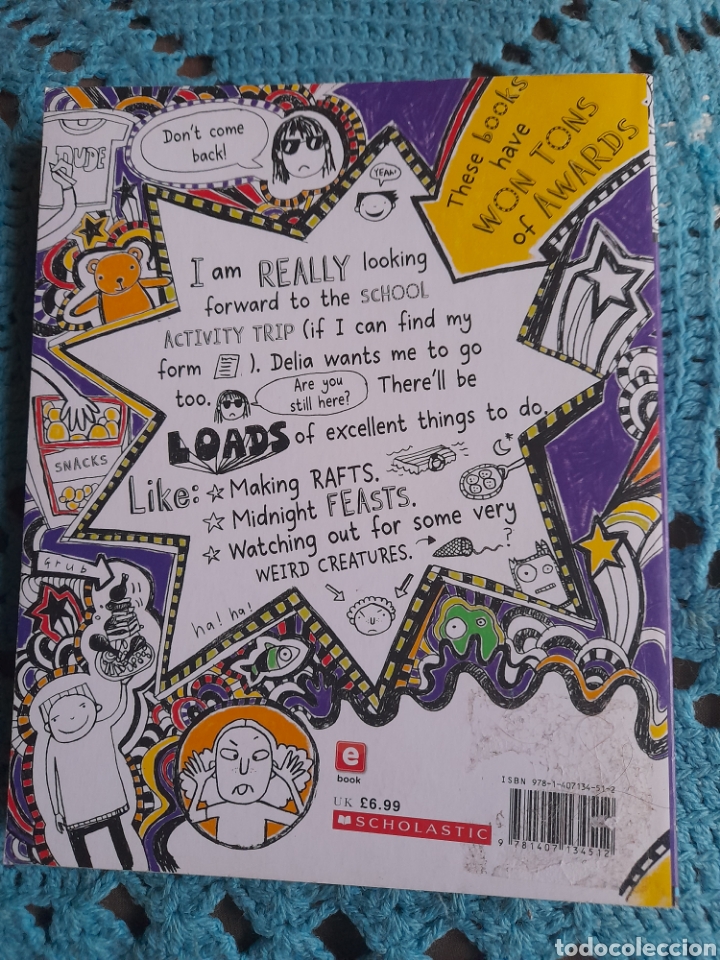 DUDE
Don't come
back!
YEAH!
These books
have
WON TONS
of AWARDS
I am REALLY looking
forward to the SCHOOL
ACTIVITY TRIP (if I can find my
form ). Delia wants me to go
too. Are you
still here? There'll be
LOADS of excellent things to do.
Like: ☆ Making RAFTS.
☆ Midnight FEASTS.
☆ Watching out for some very
WEIRD CREATURES. → ?
SNACKS
Grub
ha! ha!
e
book
UK £6.99
SCHOLASTIC
ISBN 978-1-407134-51-2
9 781407 134512
todocoleccion